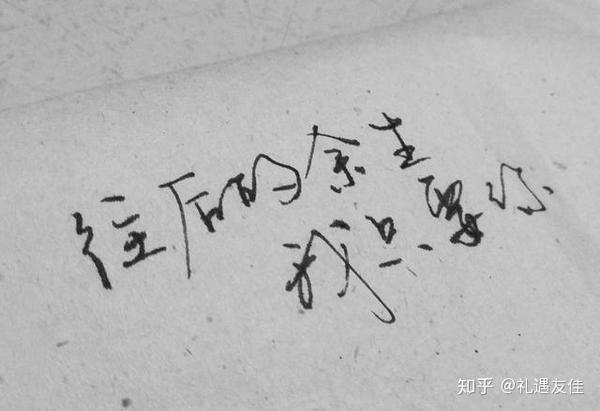 往后的余生
我只要你
知乎 @礼遇友佳